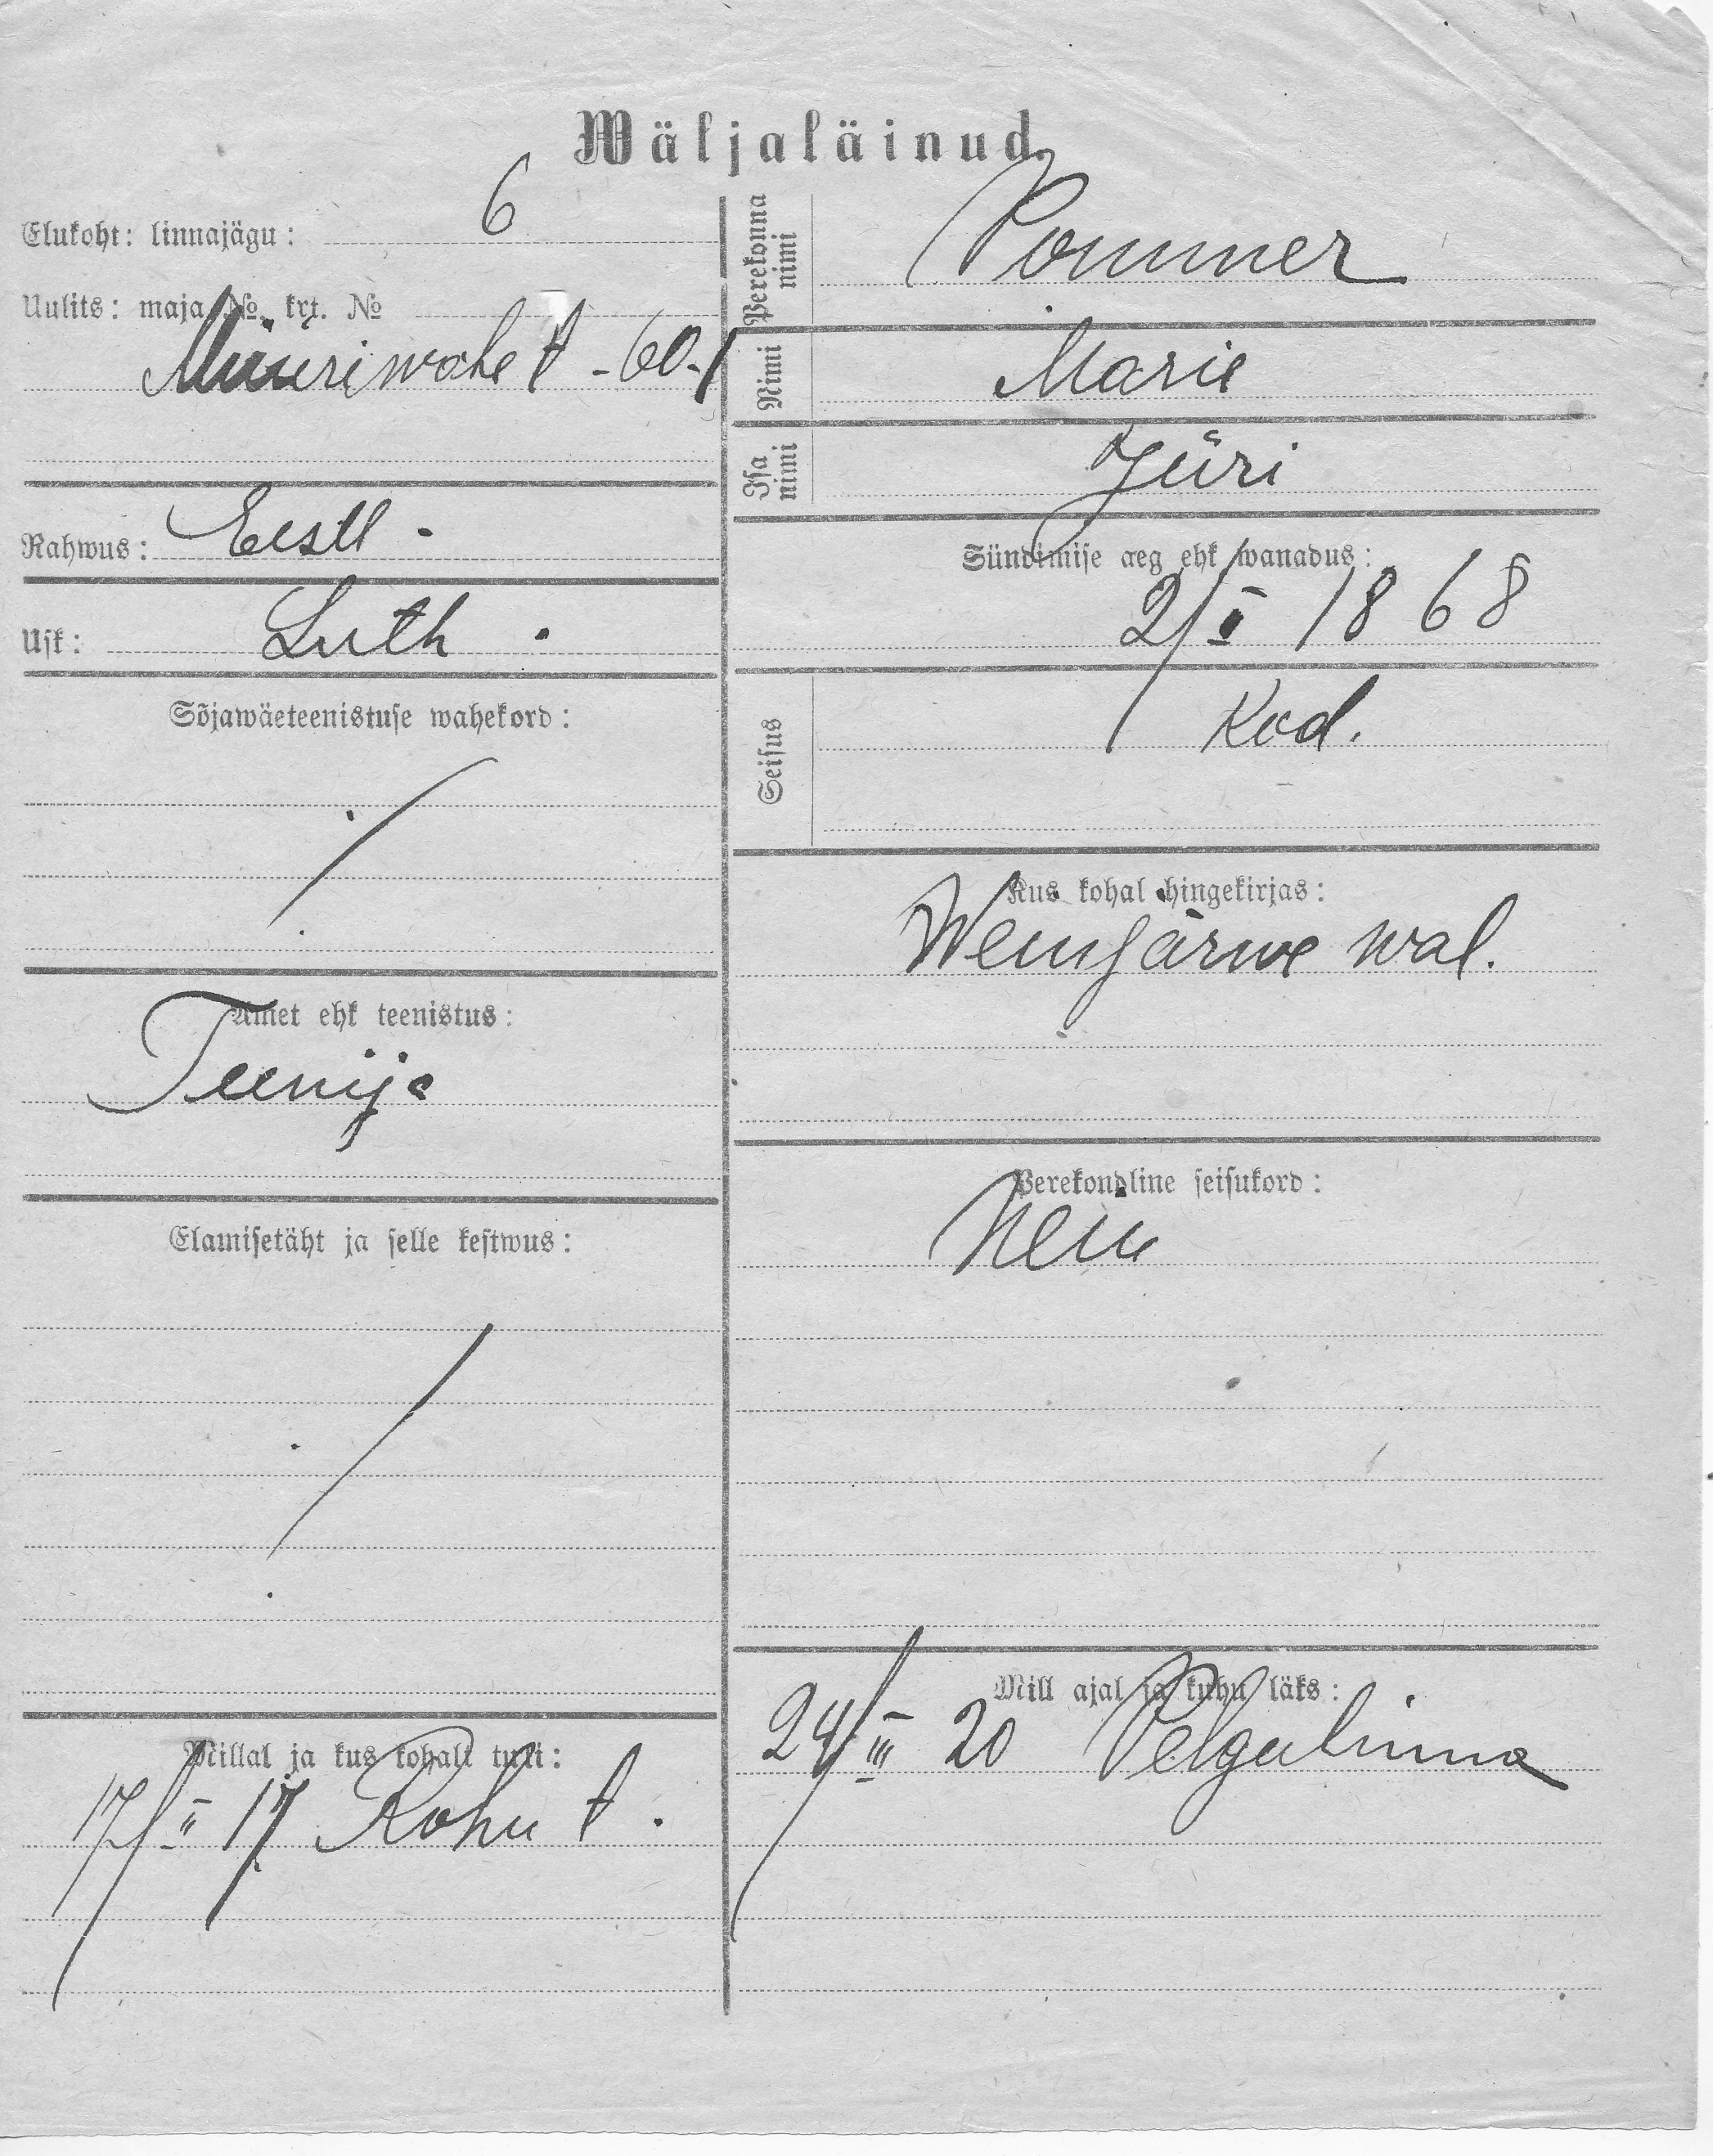 Wäljaläinud.
Elukoht: linnajägu: 6
Uulits: maja No. krt. No
Müüriwahe t - 60-1
Rahwus: Eestl.
Usk: Luth.
Sõjawäeteenistuse wahekord:
Amet ehk teenistus:
Teenija
Elamisetäht ja selle kestwus:
Millal ja kus kohalt tuli:
17/II 17 Rohu t.
Perekonna nimi Pommer
Nimi Marie
Isa nimi Jüri
Sündimise aeg ehk wanadus:
2/I 1868
Seisus Kod.
Kus kohal hingekirjas:
wal.
Perekondline seisukord:
Mill ajal ja kuhu läks:
24/III 20 Pelgulinna